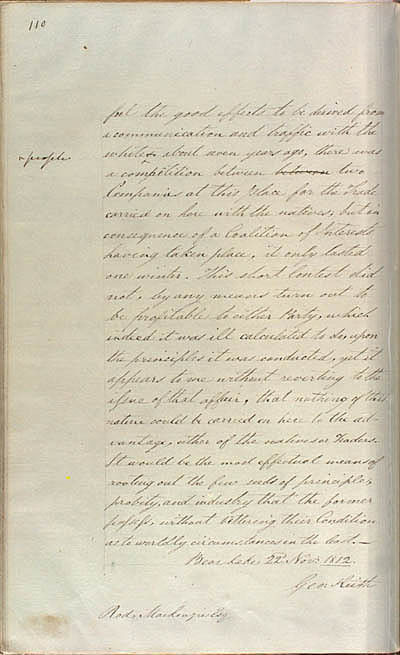 110
feel the good effects to be derived from
a communication and traffic with the
x people
white x about seven years ago, there was
a competition between between two
Companies at this place for the Trade
carried on here with the natives, but in
consequence of a Coalition of Interests
having taken place, it only lasted
one winter. This short Contest did
not, by any means turn out to
be profitable to either Party, which
indeed it was ill calculated to do, upon
the principles it was conducted, yet it
appears to me without reverting to the
issue of that affair, that nothing of this
nature could be carried on here to the ad-
vantage, either of the natives or Traders.
It would be the most effectual means of
rooting out the few seeds of principle,
probity, and industry that the former
possess, without bettering their Condition
as to worldly circumstances in the least. —
Bear Lake 22d Novr 1812.
Geo: Keith
Rodk Mackenzie Esq